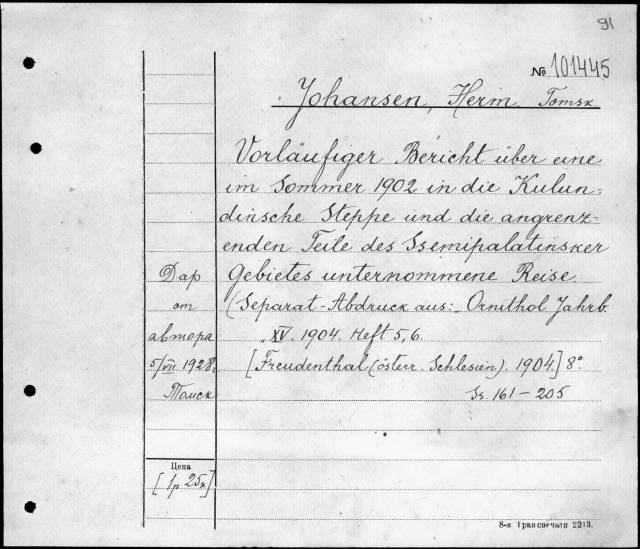 91
№ 101445
Johansen, Herm. Tomsk
Vorläufiger Bericht über eine
im Sommer 1902 in die Kulun=
dinsche Steppe und die angrenz-
enden Teile des Ssemipalatinsker
Gebietes unternommene Reise.
(Separat-Abdruck aus: Ornithol. Jahrb.
XV. 1904. Heft 5,6.
[Freudenthal (österr. Schlesien). 1904.] 8°
Ss. 161-205
Дар
от
автора
5/VII 1928 г.
Томск
Цена
[1р 25к]
8-я Транспечати 2213.